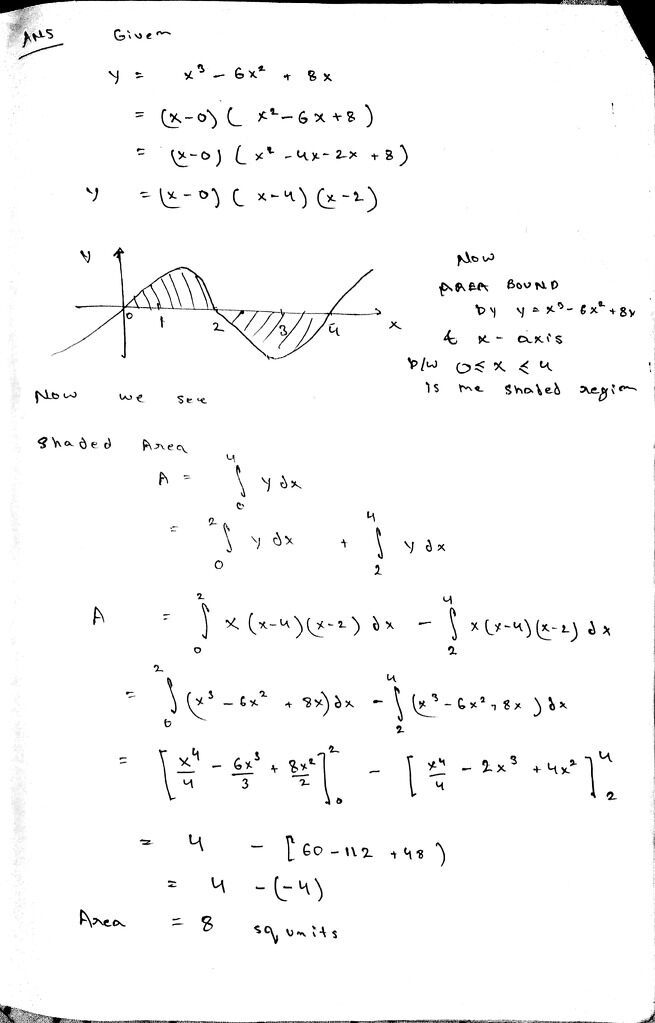 ANS Given
y = x³ - 6x² + 8x
= (x-0) ( x²-6x+8 )
= (x-0) ( x² -4x-2x +8)
y = (x-0) ( x-4) (x-2)
y
0 1 2 3 4 x
Now
AREA BOUND
by y = x³-6x²+8x
& x-axis
b/w 0≤x≤4
is the shaded region
Now we see
Shaded Area
A = ∫₀⁴ y dx
= ∫₀² y dx + ∫₂⁴ y dx
A = ∫₀² x (x-4)(x-2) dx - ∫₂⁴ x(x-4)(x-2) dx
= ∫₀² (x³ - 6x² + 8x) dx - ∫₂⁴ (x³-6x²+8x) dx
= [x⁴/4 - 6x³/3 + 8x²/2]₀² - [x⁴/4 - 2x³ + 4x²]₂⁴
= 4 - [60-112 +48)
= 4 -(-4)
Area = 8 sq units